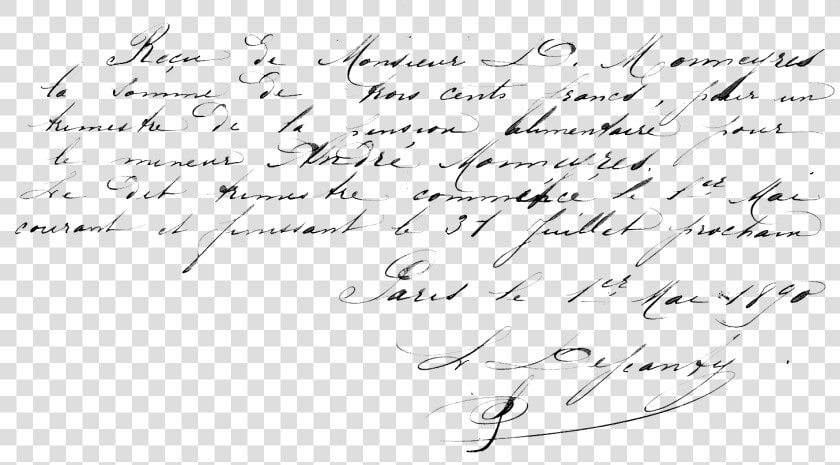 Reçu de Monsieur D. Monneyres
la somme de trois cents francs, pour un
trimestre de la pension alimentaire pour
le mineur André Monneyres.
Le dit trimestre commence le 1er Mai
courant et finissant le 31 Juillet prochain
Paris le 1er Mai 1890